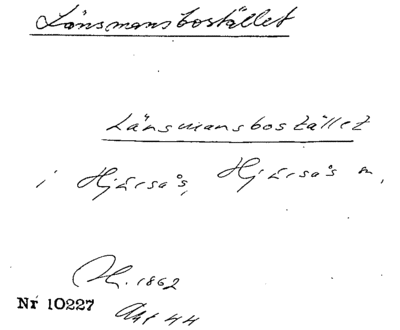 Länsmansbostället
Länsmansbostället
i Hjärsås, Hjärsås sn,
1862
Nr 10227
Akt 44